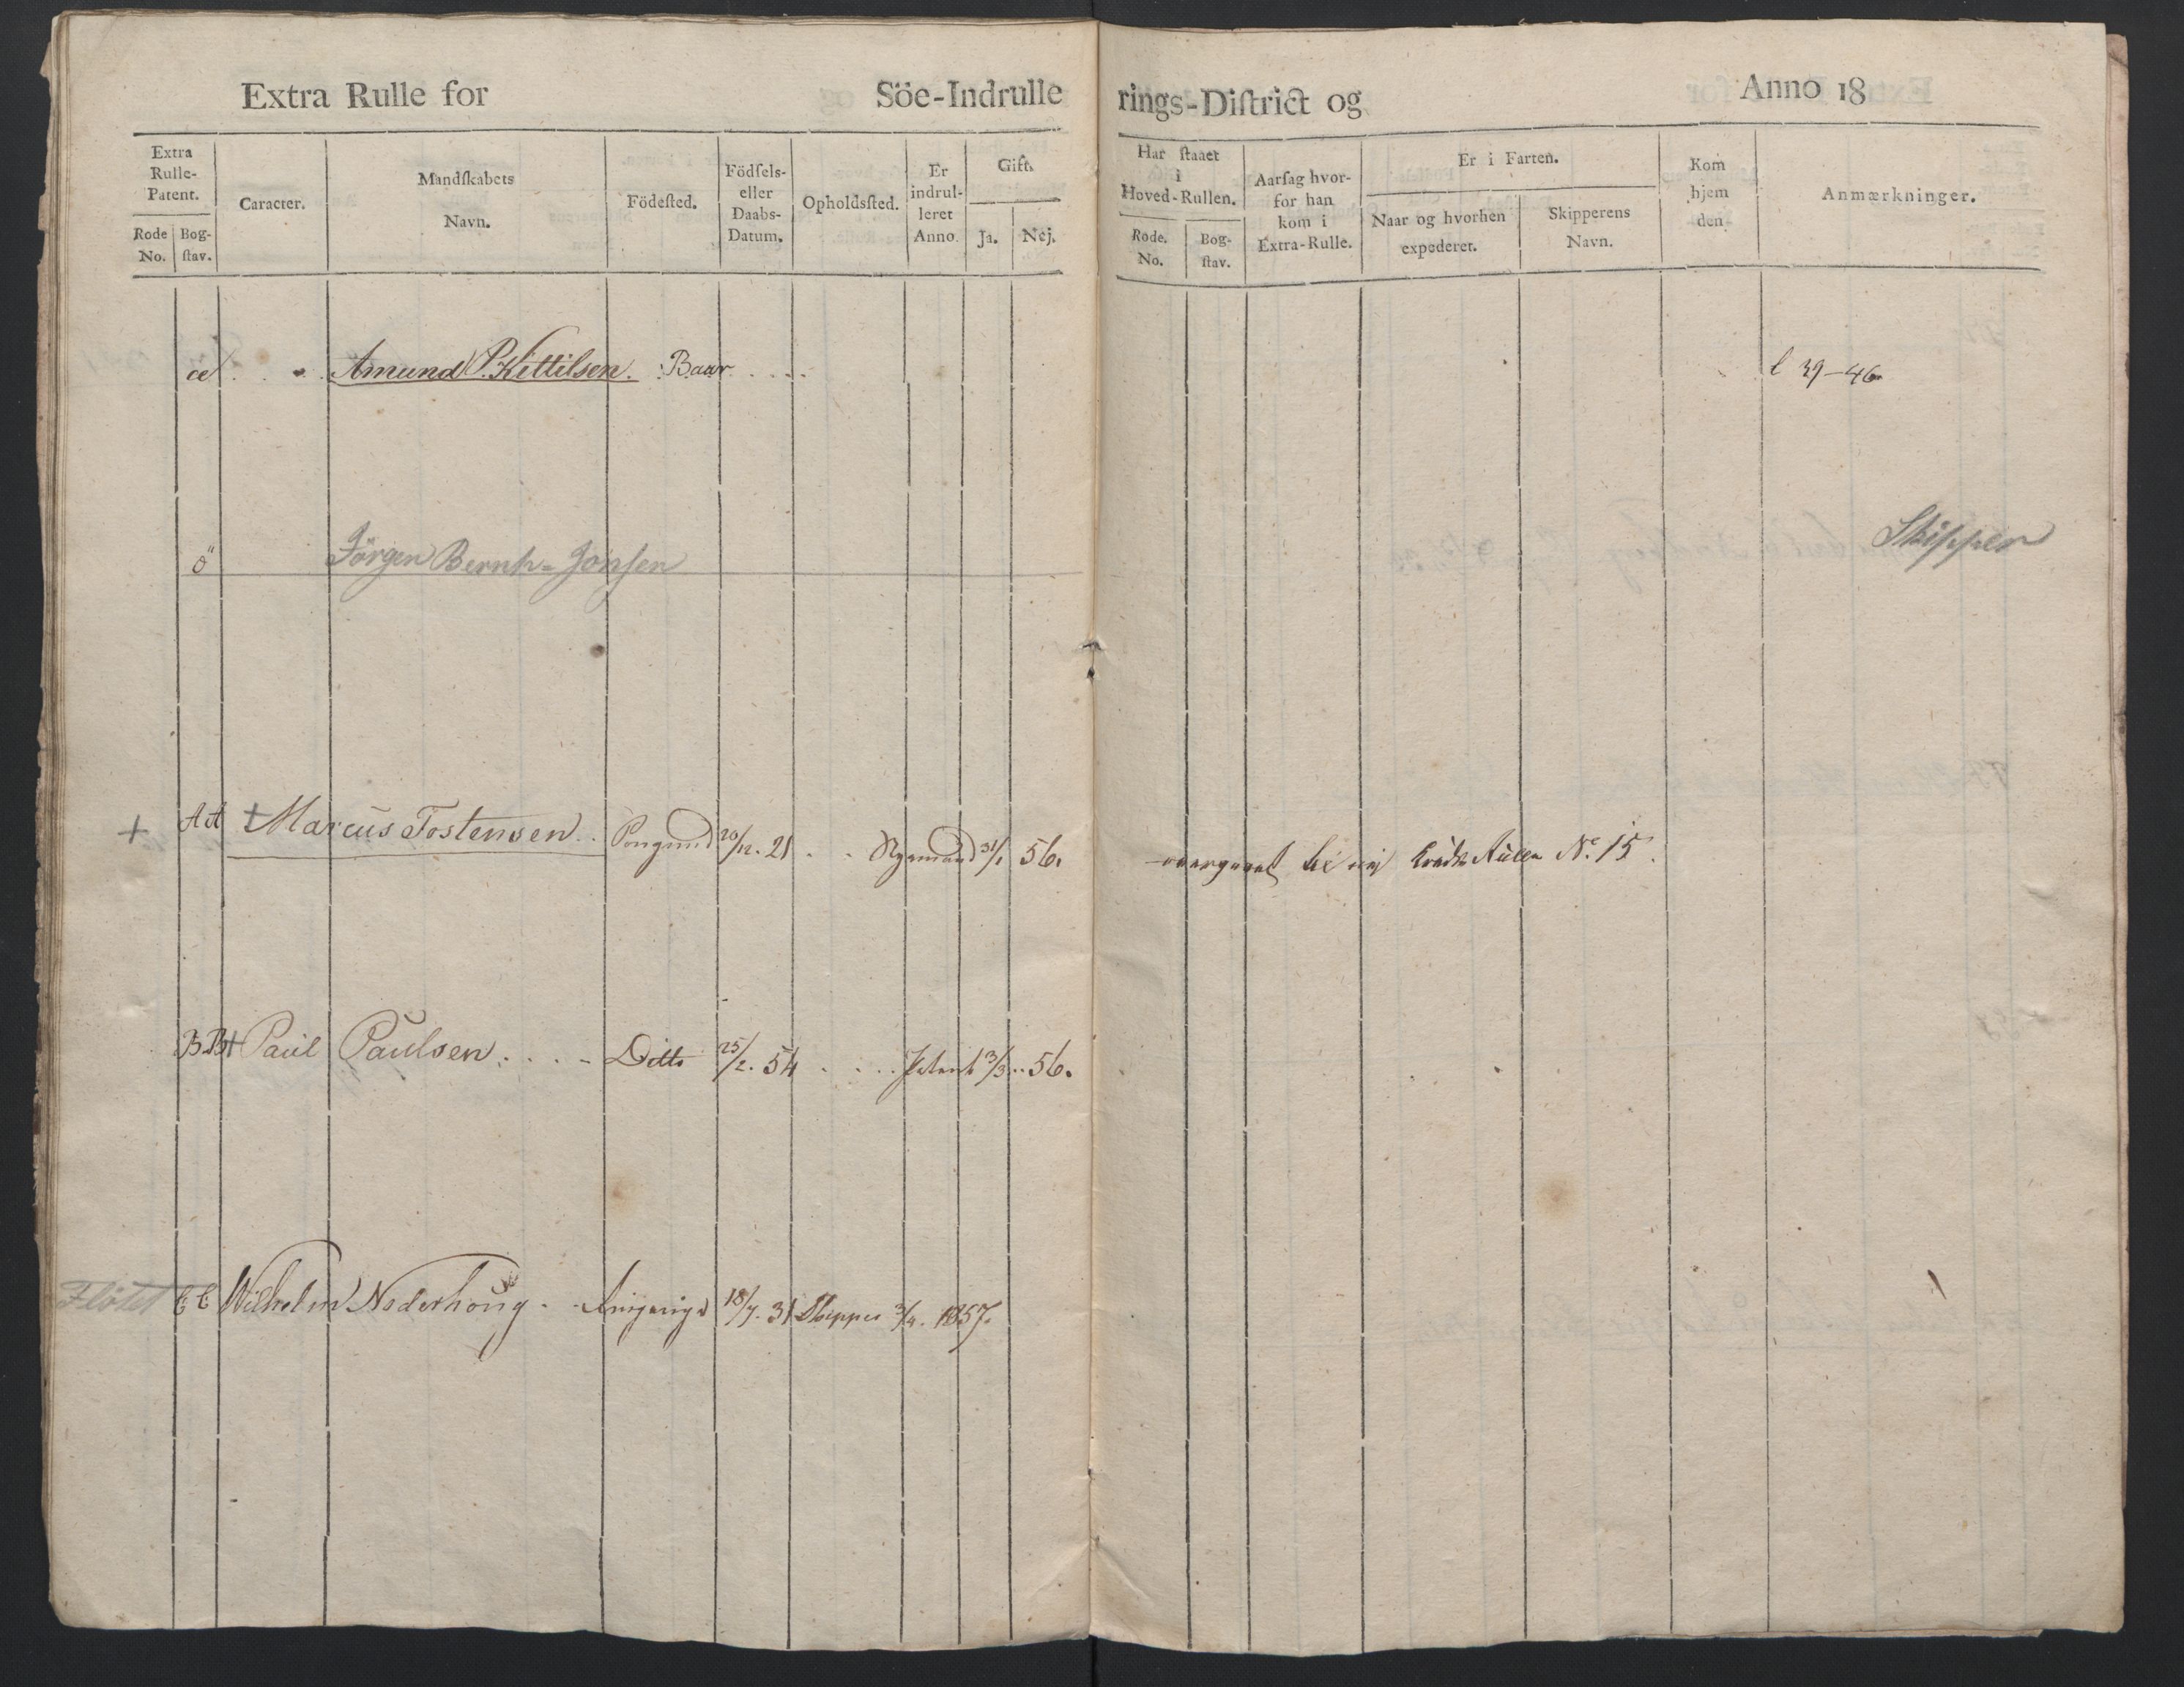 Extra Rulle for Söe-Indrulle rings-Diſtrict og Anno 18
Extra Rulle-Patent.
Rode No.
Bog-ſtav.
Caracter.
Mandſkabets Navn.
Födeſted.
Födſels- eller Daabs-Datum.
Opholdsſted.
Er indrul-leret Anno.
Gift.
Ja.
Nej.
Har ſtaaet i Hoved-Rullen.
Rode. No.
Bog-ſtav.
Aarſag hvor-for han kom i Extra-Rulle.
Er i Farten.
Naar og hvorhen expederet.
Skipperens Navn.
Kom hjem den
Anmærkninger.
æ Amund P. Kittilsen. Baar. 39-46
ö Jörgen Bernh- Jonsen Skipper
+ AA + Marcus Tostensen 20/12. 21 31/1 56. No. 15.
BB + Paul Paulsen. Ditto 25/2. 54 Patent 3/3 56.
Wilhelm 18/7. 31 Skipper 3/4. 1857.